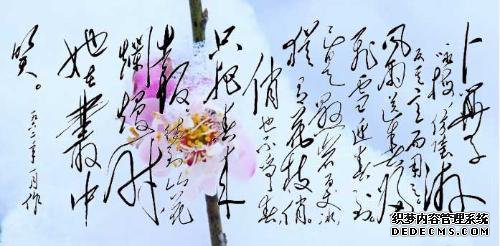 卜算子
咏梅
反其意而用之
风雨送春归
飞雪迎春到
已是悬崖百丈冰
犹有花枝俏。
俏也不争春
只把春来
报
待到山花
烂熳时
她在丛中
笑。
织梦内容管理系统
DEDECMS.COM